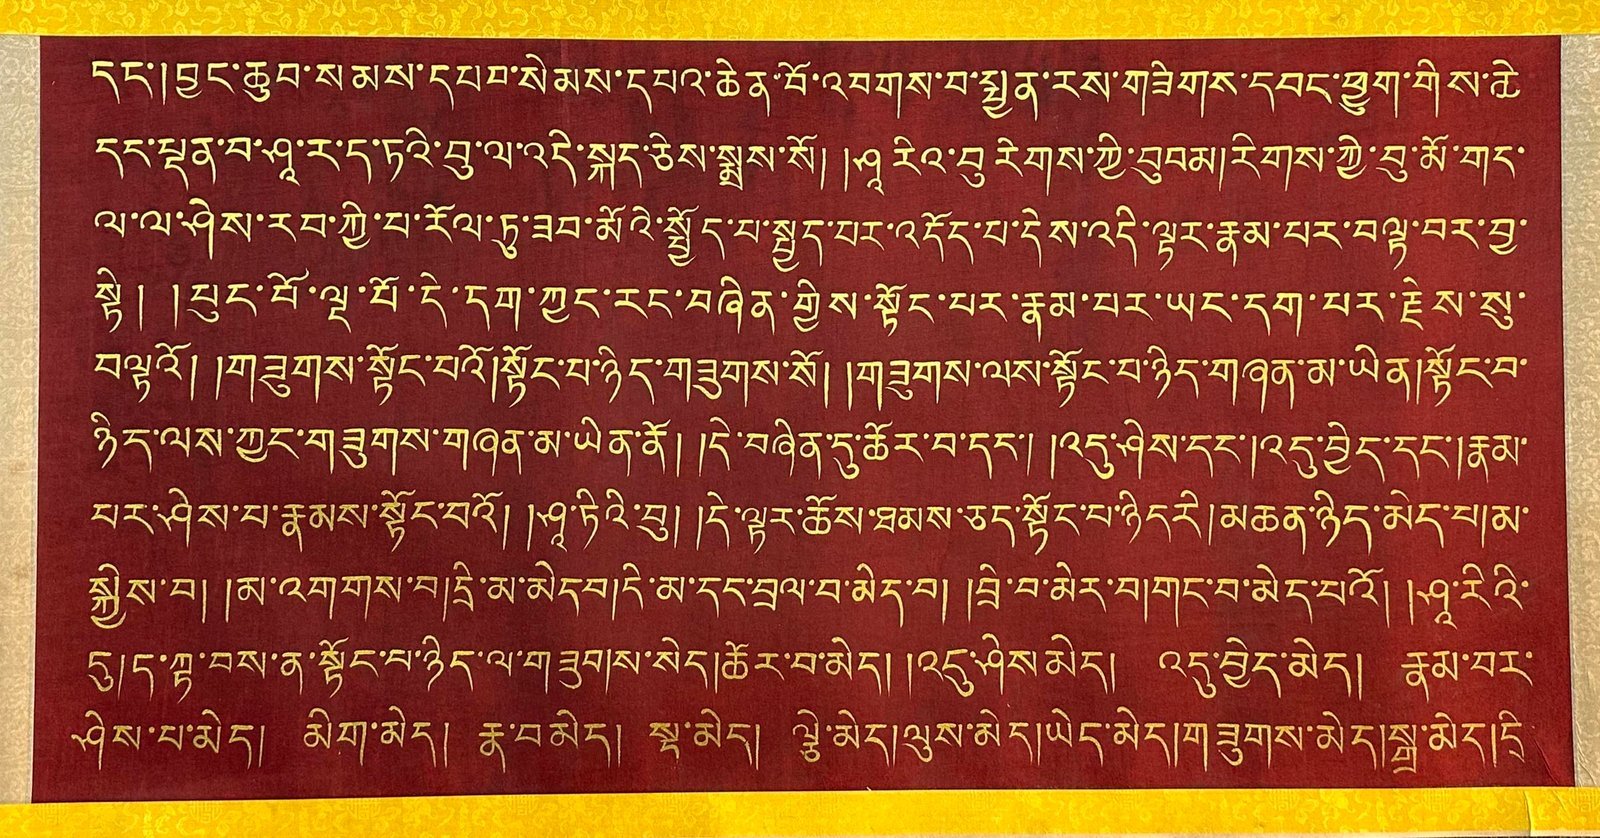 དང་།བྱང་ཆུབ་སེམས་དཔའ་སེམས་དཔའ་ཆེན་པོ་འཕགས་པ་སྤྱན་རས་གཟིགས་དབང་ཕྱུག་གིས་ཚེ
དང་ལྡན་བ་ཤཱ་ར་ད་ཏའི་བུ་ལ་འདི་སྐད་ཅེས་སྨྲས་སོ། །ཤཱ་རིའི་བུ་རིགས་ཀྱི་བུའམ།རིགས་ཀྱི་བུ་མོ་གང་
ལ་ལ་ཤེས་རབ་ཀྱི་པ་རོལ་ཏུ་ཟབ་མོའི་སྤྱོད་པ་སྤྱད་པར་འདོད་པ་དེས་འདི་ལྟར་རྣམ་པར་བལྟ་བར་བྱ་
སྟེ། །ཕུང་པོ་ལྔ་པོ་དེ་དག་ཀྱང་རང་བཞིན་གྱིས་སྟོང་པར་རྣམ་པར་ཡང་དག་པར་རྗེས་སུ་
བལྟའོ། །གཟུགས་སྟོང་པའོ།སྟོང་པ་ཉིད་གཟུགས་སོ། །གཟུགས་ལས་སྟོང་པ་ཉིད་གཞན་མ་ཡིན།སྟོང་པ་
ཉིད་ལས་ཀྱང་གཟུགས་གཞན་མ་ཡིན་ནོ། །དེ་བཞིན་དུ་ཚོར་བ་དང་། །འདུ་ཤེས་དང་།འདུ་བྱེད་དང།རྣམ་
པར་ཤེས་པ་རྣམས་སྟོང་པའོ། །ཤཱ་ཏིའི་བུ། །དེ་ལྟར་ཆོས་ཐམས་ཅད་སྟོང་པ་ཉིད་དེ།མཚན་ཉིད་མེད་པ།མ་
སྐྱེས་པ། །མ་འགགས་པ།དྲི་མ་མེདབ།དྲི་མ་དང་བྲལ་བ་མེད་བ། །བྲི་བ་མེར་བ།གང་བ་མེད་པའོ། །ཤཱ་རིའི་
དུ།ད་ཀྟ་བས་ན་སྟོང་པ་ཉིད་ལ་གཟུགས་མེད།ཚོར་བ་མེད། །འདུ་ཤེས་མེད། འདུ་བྱེད་མེད། རྣམ་པར་
ཤེས་པ་མེད། མིག་མེད། རྣ་བ་མེད། སྣ་མེད། ལྕེ་མེད།ལུས་མེད།ཡེད་མེད།གཟུགས་མེད།སྒྲ་མེད།དྲི